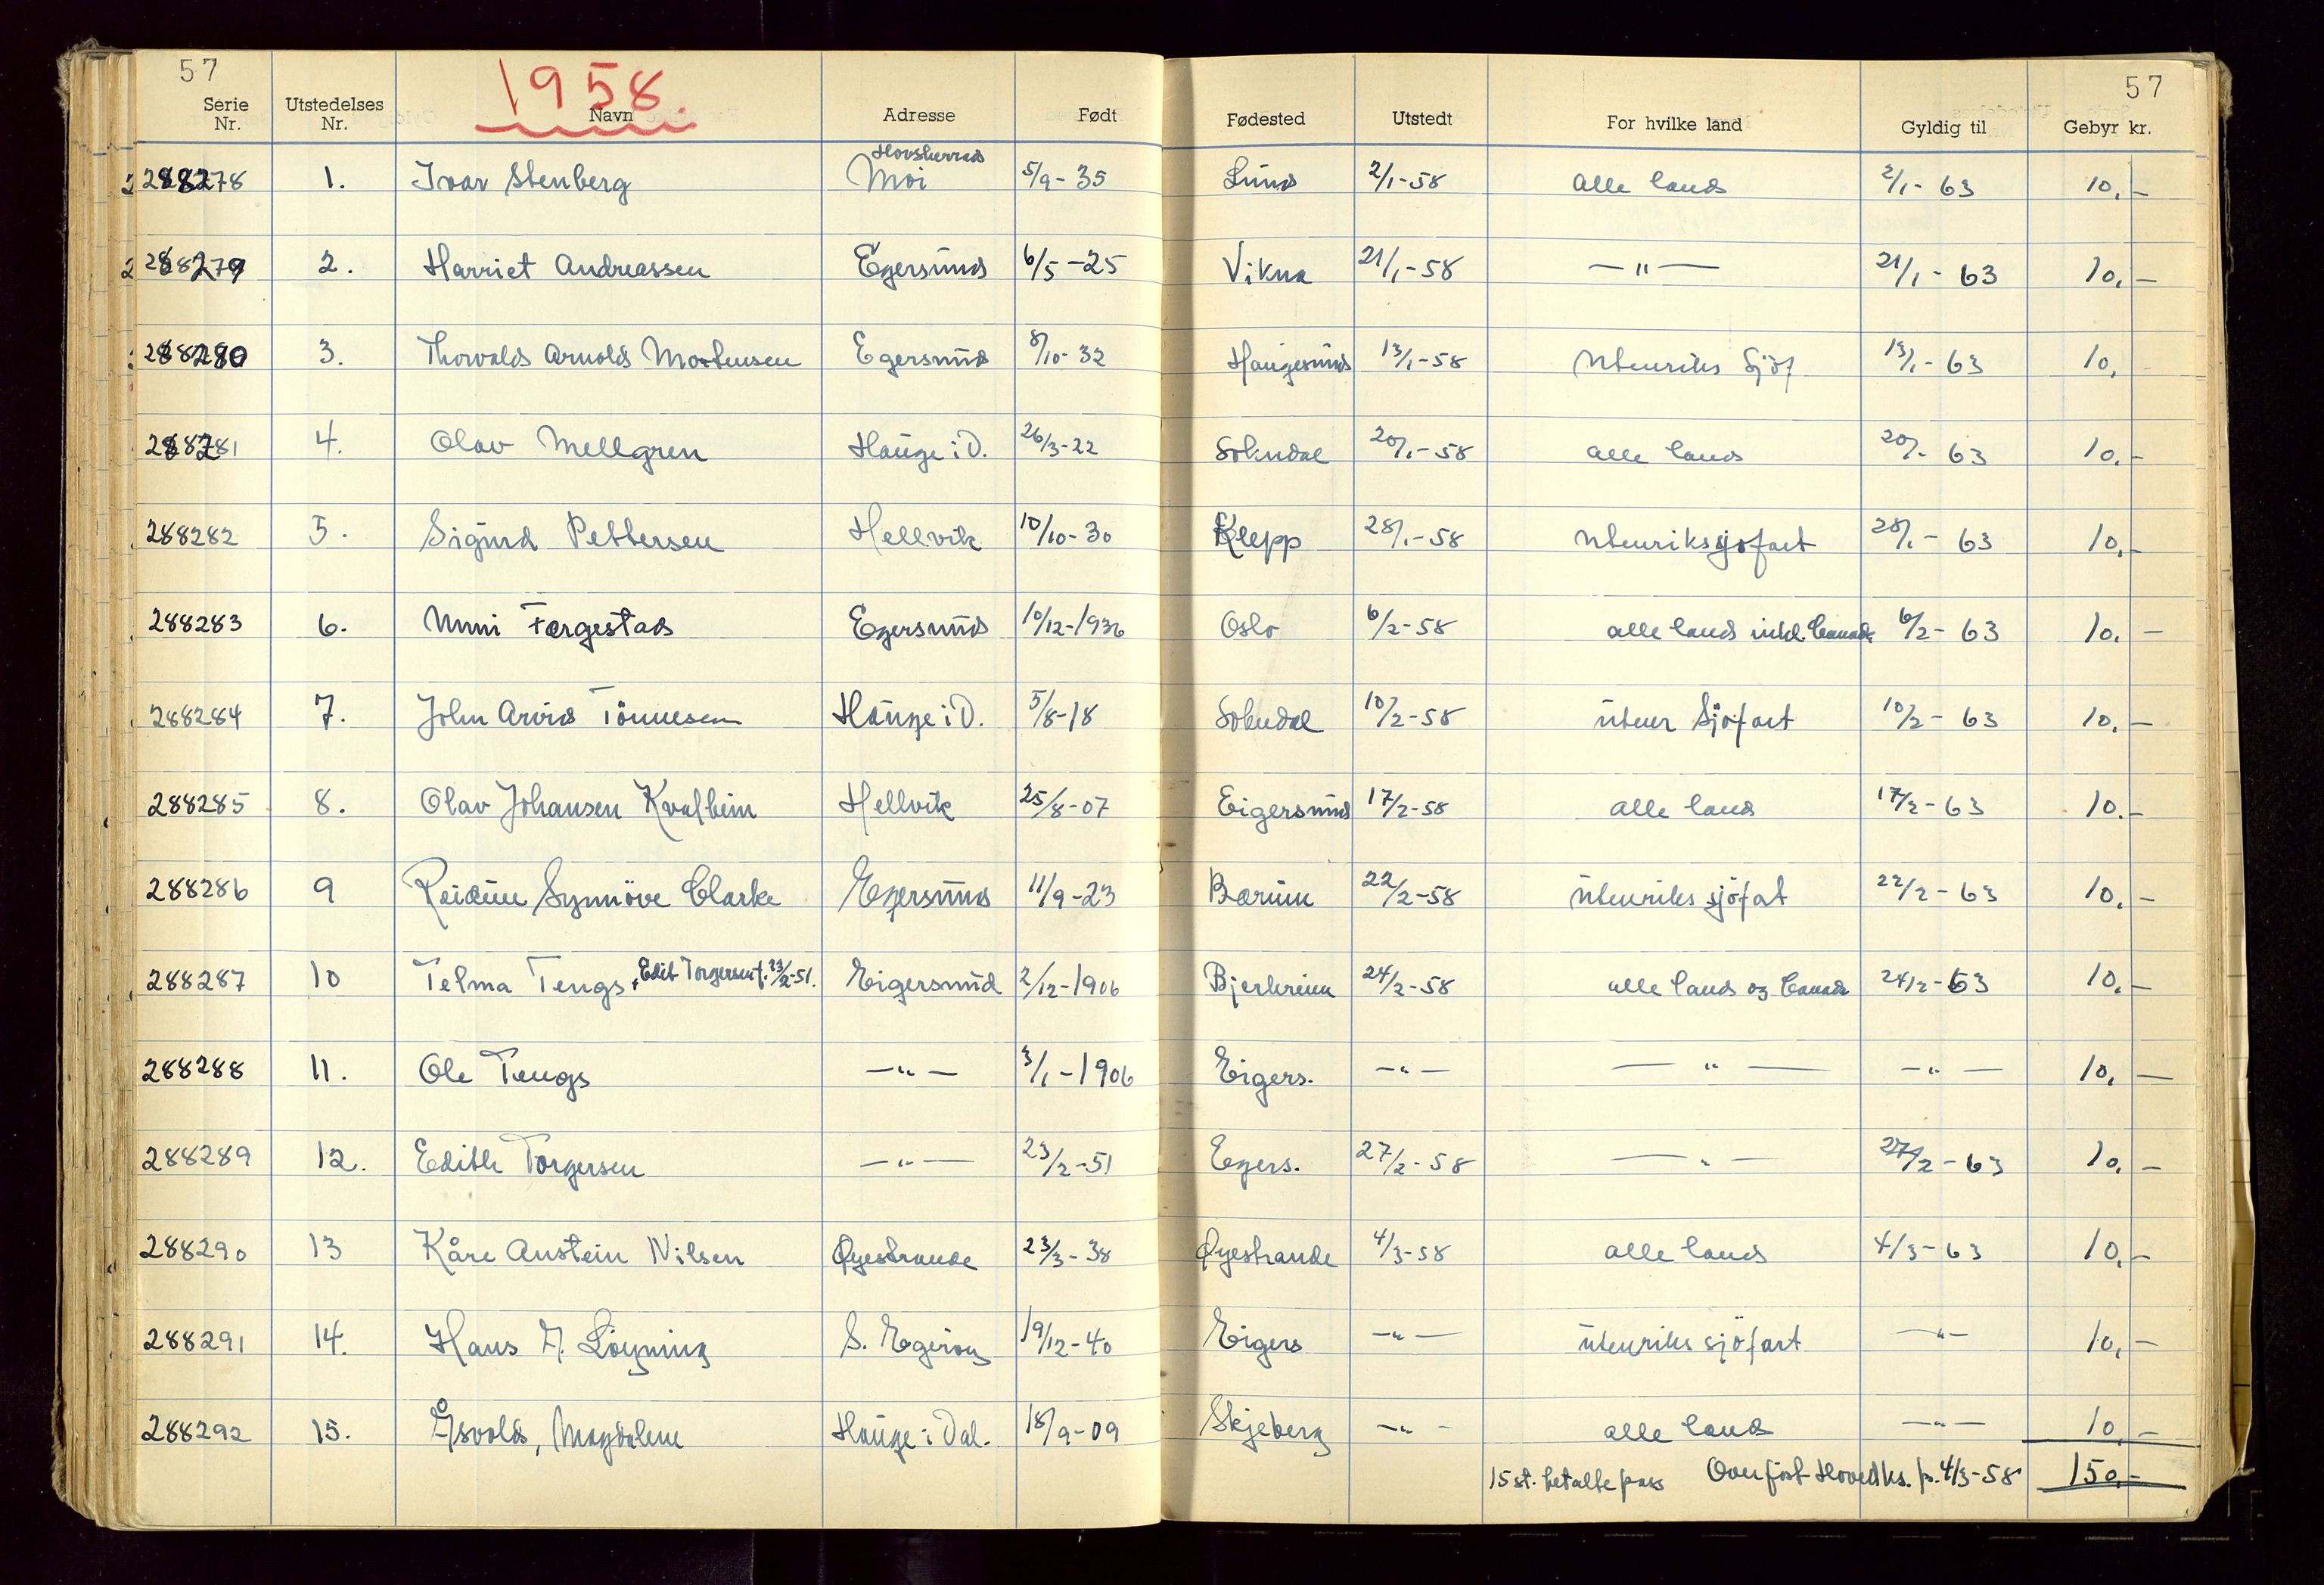 57
1958.
57
Serie Nr. Utstedelses Nr. Navn Adresse Født Fødested Utstedt For hvilke land Gyldig til Gebyr kr.
Hovsherred
288278 1. Ivar Stenberg Moi 5/9-35 Lund 2/1-58 alle land 2/1-63 10,-
288279 2. Harriet Andreassen Egersund 6/5-25 Vikna 21/1-58 -"- 21/1-63 10,-
288280 3. Thorvald Arnold Mortensen Egersund 8/10-32 Haugesund 13/1-58 Utenriks Sjöf 13/1-63 10,
288281 4. Olav Mellgren Hauge i D. 26/3-22 Sokndal 20/1-58 alle land 20/1-63 10.-
288282 5. Sigurd Pettersen Hellvik 10/10-30 Klepp 28/1-58 Utenriksjöfart 28/1-63 10,-
288283 6. Unni Førgestad Egersund 10/12-1936 Oslo 6/2-58 alle land inkl. Canada 6/2-63 10,-
288284 7. John Arvid Tönnesen Hauge i D. 5/8-18 Sokndal 10/2-58 Utenr Sjöfart 10/2-63 10,-
288285 8. Olav Johansen Kvalheim Hellvik 25/8-07 Eigersund 17/2-58 alle land 17/2-63 10.-
288286 9 Reidun Synnöve Clarke Egersund 11/9-23 Bærum 22/2-58 Utenriks sjöfat 22/2-63 10,-
288287 10 Telma Tengs + Edit Torgersen f. 23/2-51. Eigersund 2/12-1906 Bjerkreim 24/2-58 alle land og Canada 24/2-63 10,-
288288 11. Ole Tengs -"- 3/1-1906 Eigers. -"- -"- -"- 10,-
288289 12. Edith Torgersen -"- 23/2-51 Egers. 27/2-58 -"- 27/2-63 10,-
288290 13 Kåre Anstein Nilsen Øyestrande 23/3-38 Øyestrande 4/3-58 alle land 4/3-63 10,-
288291 14. Hans A. Löyning S. Egeröy 19/12-40 Eigers -"- Utenriks sjöfart -"- 10,-
288292 15. Åsvold, Magdalene Hauge i Dal. 18/9-09 Skjeberg -"- alle land -"- 10,-
15 st. betalte pass Overfört Hovedks. p. 4/3-58 150,-